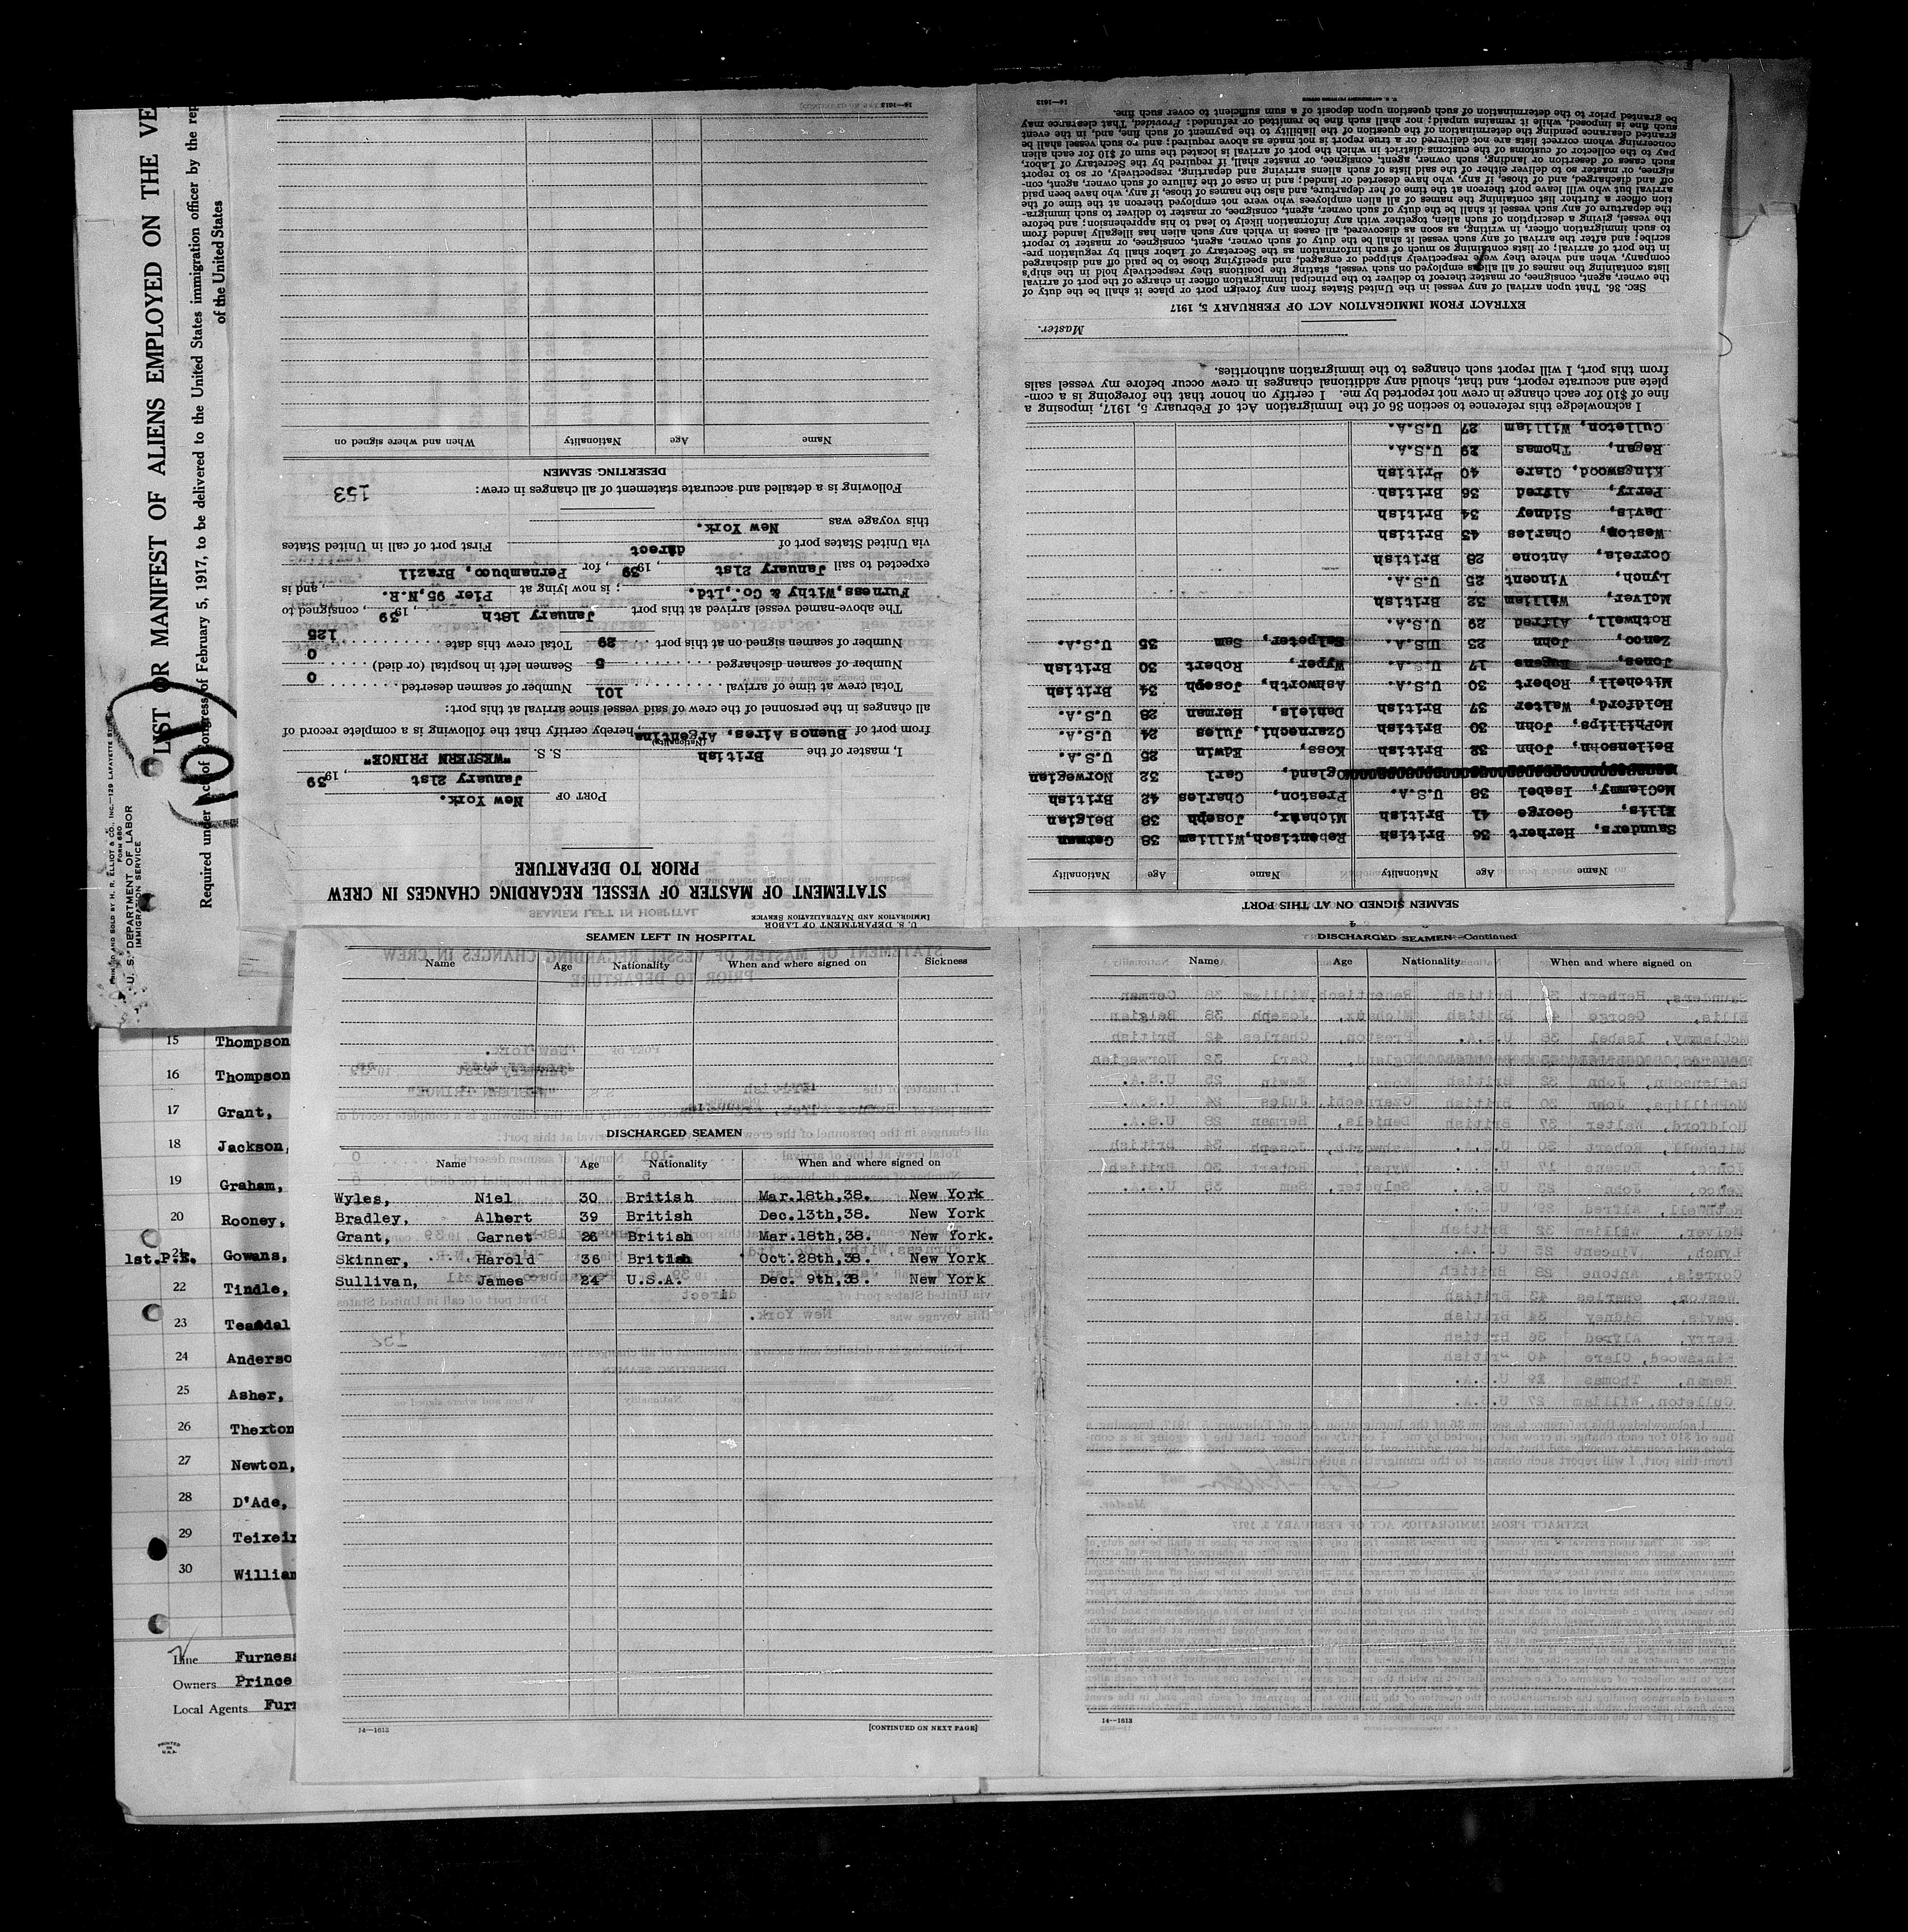 LIST OR MANIFEST OF ALIENS EMPLOYED ON THE VE
Required under Act of Congress of February 5, 1917, to be delivered to the United States immigration officer by the rep
of the United States
PRINTED AND SOLD BY H. R. ELLIOT & CO., INC.—129 LAFAYETTE ST
FORM 680
U. S. DEPARTMENT OF LABOR
IMMIGRATION SERVICE
U. S. DEPARTMENT OF LABOR
IMMIGRATION AND NATURALIZATION SERVICE
STATEMENT OF MASTER OF VESSEL REGARDING CHANGES IN CREW
PRIOR TO DEPARTURE
PORT OF New York.
January 21st, 1939
I, master of the British S. S. "WESTERN PRINCE"
(Nationality)
from port of Buenos Aires, Argentina, hereby certify that the following is a complete record of
all changes in the personnel of the crew of said vessel since arrival at this port:
Total crew at time of arrival 101 Number of seamen deserted 0
Number of seamen discharged 5 Seamen left in hospital (or died) 0
Number of seamen signed on at this port 29 Total crew this date 125
The above-named vessel arrived at this port January 18th, 1939, consigned to
Furness, Withy & Co., Ltd. ; is now lying at Pier 95, N.R. and is
expected to sail January 21st, 1939, for Pernambuco, Brazil
via United States port of direct First port of call in United States
this voyage was New York.
Following is a detailed and accurate statement of all changes in crew: 153
DESERTING SEAMEN
Name Age Nationality When and where signed on
14—1613 [CONTINUED ON NEXT PAGE]
SEAMEN SIGNED ON AT THIS PORT
Name Age Nationality Name Age Nationality
Saunders, Herbert 36 British Rebentisch, William 38 German
Ellis, George 41 British Michaux, Joseph 38 Belgian
McClemmy, Isabel 38 U.S.A. Preston, Charles 42 British
Ogland, Carl 32 Norwegian
Beilensohn, John 32 British Koss, Edwin 25 U.S.A.
McPhillips, John 30 British Czarnechi, Jules 24 U.S.A.
Holdford, Walter 37 British Daniels, Herman 28 U.S.A.
Mitchell, Robert 30 U.S.A. Ashworth, Joseph 34 British
Jones, Eugene 17 U.S.A. Wyper, Robert 30 British
Zenco, John 23 U.S.A. Salpeter, Sam 35 U.S.A.
Rothwell, Alfred 29 U.S.A.
McIver, William 32 British
Lynch, Vincent 25 U.S.A.
Correia, Antone 28 British
Weston, Charles 43 British
Davis, Sidney 34 British
Perry, Alfred 36 British
Kingswood, Clare 40 British
Regan, Thomas 29 U.S.A.
Culleton, William 27 U.S.A.
I acknowledge this reference to section 36 of the Immigration Act of February 5, 1917, imposing a
fine of $10 for each change in crew not reported by me. I certify on honor that the foregoing is a com-
plete and accurate report, and that, should any additional changes in crew occur before my vessel sails
from this port, I will report such changes to the immigration authorities.
Master.
EXTRACT FROM IMMIGRATION ACT OF FEBRUARY 5, 1917
SEC. 36. That upon arrival of any vessel in the United States from any foreign port or place it shall be the duty of
the owner, agent, consignee, or master thereof to deliver to the principal immigration officer in charge of the port of arrival
lists containing the names of all aliens employed on such vessel, stating the positions they respectively hold in the ship's
company, when and where they were respectively shipped or engaged, and specifying those to be paid off and discharged
in the port of arrival; or lists containing so much of such information as the Secretary of Labor shall by regulation pre-
scribe; and after the arrival of any such vessel it shall be the duty of such owner, agent, consignee, or master to report
to such immigration officer, in writing, as soon as discovered, all cases in which any such alien has illegally landed from
the vessel, giving a description of such alien, together with any information likely to lead to his apprehension; and before
the departure of any such vessel it shall be the duty of such owner, agent, consignee, or master to deliver to such immigra-
tion officer a further list containing the names of all alien employees who were not employed thereon at the time of the
arrival but who will leave port thereon at the time of her departure, and also the names of those, if any, who have been paid
off and discharged, and of those, if any, who have deserted or landed; and in case of the failure of such owner, agent, con-
signee, or master so to deliver either of the said lists of such aliens arriving and departing, respectively, or so to report
such cases of desertion or landing, such owner, agent, consignee, or master shall, if required by the Secretary of Labor,
pay to the collector of customs of the customs district in which the port of arrival is located the sum of $10 for each alien
concerning whom correct lists are not delivered or a true report is not made as above required; and no such vessel shall be
granted clearance pending the determination of the question of the liability to the payment of such fine, and, in the event
such fine is imposed, while it remains unpaid; nor shall such fine be remitted or refunded: Provided, That clearance may
be granted prior to the determination of such question upon deposit of a sum sufficient to cover such fine.
14—1613
U. S. GOVERNMENT PRINTING OFFICE
SEAMEN LEFT IN HOSPITAL
Name Age Nationality When and where signed on Sickness
DISCHARGED SEAMEN
Name Age Nationality When and where signed on
Wyles, Niel 30 British Mar.18th,38. New York
Bradley, Albert 39 British Dec.13th,38. New York
Grant, Garnet 26 British Mar.18th,38. New York.
Skinner, Harold 36 British Oct.28th,38. New York
Sullivan, James 24 U.S.A. Dec. 9th,38. New York
14—1613 [CONTINUED ON NEXT PAGE]
DISCHARGED SEAMEN—Continued
Name Age Nationality When and where signed on
14—1613
15 Thompson
16 Thompson
17 Grant,
18 Jackson,
19 Graham,
20 Rooney,
1st.P.R. 21 Gowans,
22 Tindle,
23 Teasdal
24 Anderso
25 Asher,
26 Thexton
27 Newton,
28 D'Ade,
29 Teixeir
30 William
Line Furness
Owners Prince
Local Agents Furn
PRINTED
IN
U.S.A.